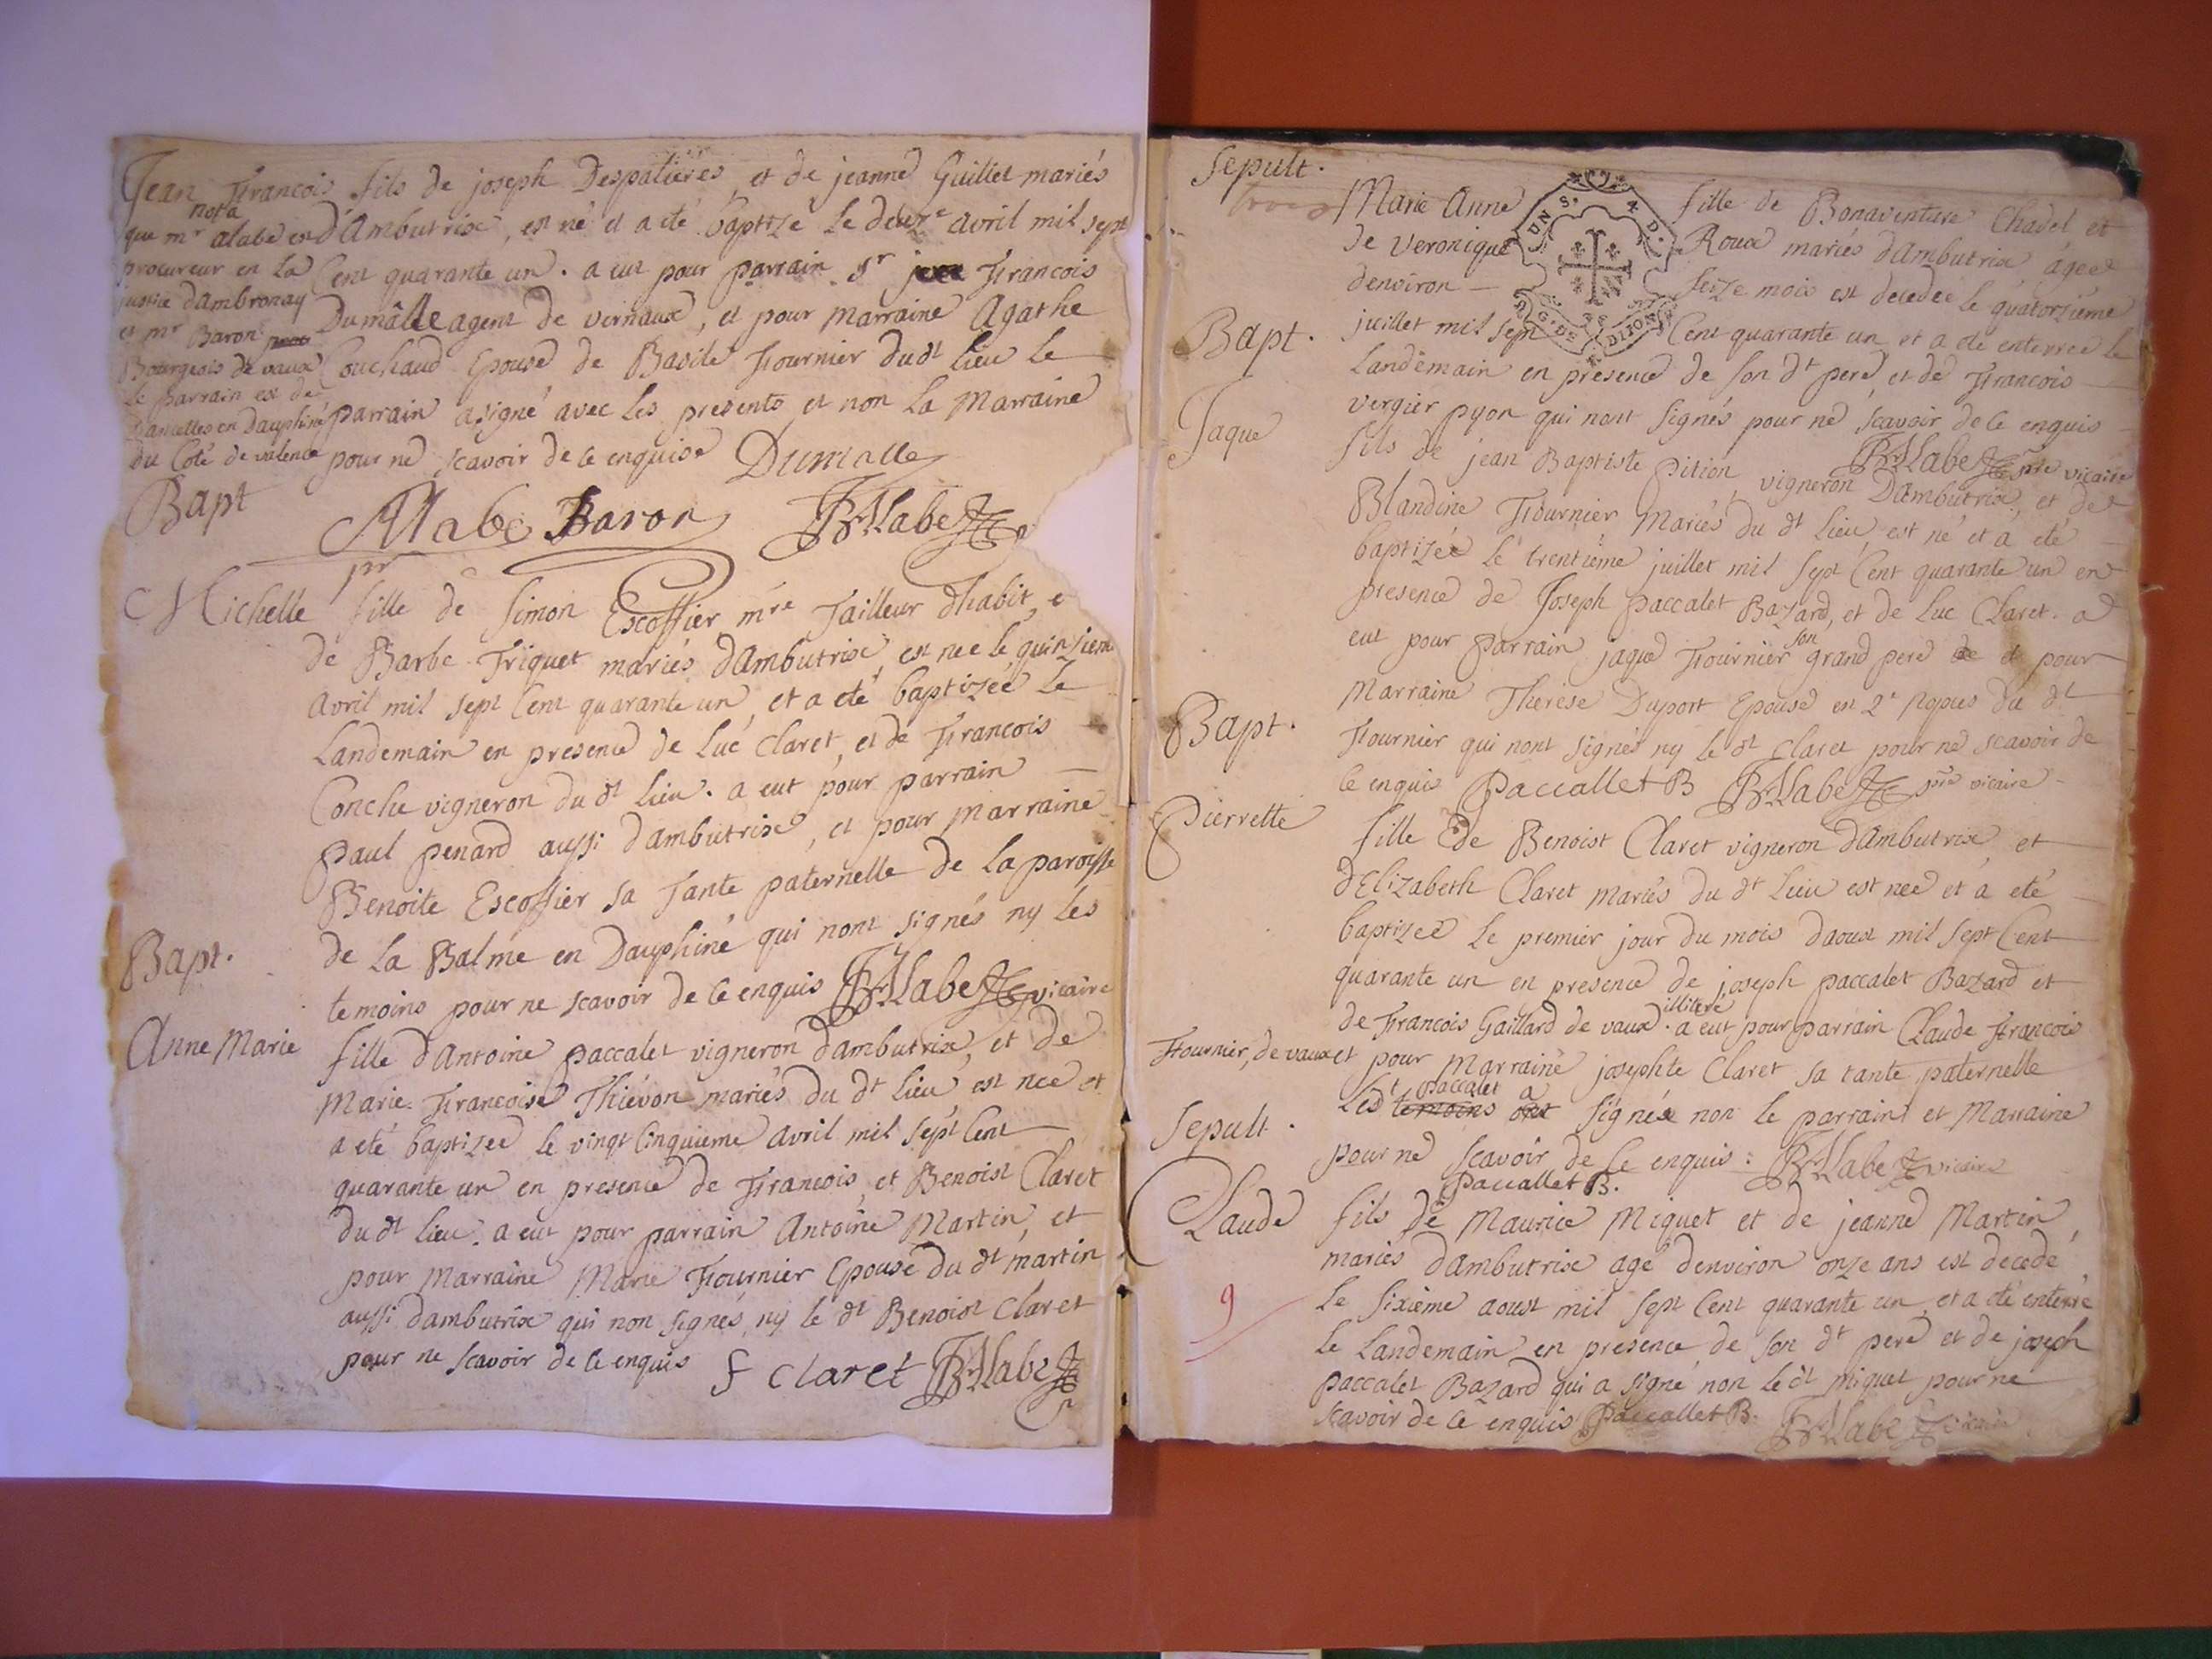 Jean Francois fils de joseph Despalieres, et de jeanne Guillet mariés
d'Ambutrix, est né et a été baptizé le deuze avril mil sept
Cent quarante un. a eut pour parrain Sr Francois
Dumâlle agent de vernaux, et pour Marraine Agathe
Couchaud Epouse de Basile Fournier dudt lieu le
parrain a signé avec les presents et non la Marraine
pour ne scavoir de ce enquise Dumalle
nota
que mr alabe est
procureur en la
justice dambronay
et mr Baron
Bourgeois de vaux
le parrain est de
en Dauphiné
du Coté de valence
Alabe Baron BrAlabe
pr
Bapt
Michelle fille de Simon Escoffier mre Tailleur dhabit, e
de Barbe Triquet mariés dAmbutrix, est nee le quinsiem
avril mil sept Cent quarante un, et a eté baptizée le
Landemain en presence de Luc Claret, et de Francois
Conche vigneron du dt lieu. a eut pour parrain
Paul penard aussi dambutrix, et pour marraine
Benoite Escoffier sa Tante paternelle de la paroisse
de la Balme en Dauphiné qui nont signés ny les
temoins pour ne scavoir de ce enquis BrAlabe vicaire
Bapt.
Anne Marie fille dAntoine paccalet vigneron dambutrix, et de
Marie Francoise Thiévon mariés du dt lieu est nee et
a eté baptizée le vingt Cinquieme avril mil sept Cent
quarante un en presence de Francois et Benoist Claret
du dt lieu. a eut pour parrain Antoine Martin, et
pour Marraine Marie Fournier Epouse du dt martin
aussi dambutrix qui non signés ny le dt Benoist Claret
pour ne scavoir de ce enquis f claret BrAlabe
Sepult.
Marie Anne fille de Bonaventure Chadel et
de Veronique Roux mariés dAmbutrix ágee
denviron seize mois est decedée le quatorzième
juillet mil sept Cent quarante un et a eté enterree le
Landemain en presence de son dt pere et de Francois
vergier pyon qui nont signés pour ne scavoir de ce enquis
BrAlabe pre vicaire
UNS. 4D.
G. DE DIJON
Bapt.
Jaque fils de jean Baptiste Pition vigneron Dambutrix, et de
Blandine Fournier Mariés du dt lieu est né et a eté
baptizée le trentième juillet mil sept Cent quarante un en
presence de Joseph paccalet Bazard, et de Luc Claret. a
eut pour Parrain jaque Fournier son grand pere et pour
Marraine Therese Duport Epouse en 2e nopces du dt
Fournier qui nont signés ny le dt Claret pour ne scavoir de
ce enquis Paccallet B BrAlabe pre vicaire
Bapt.
Pierrette fille de Benoist Claret vigneron dAmbutrix et
dElizabeth Claret mariés du dt lieu est nee et a eté
baptizee le premier jour du mois daoust mil sept Cent
quarante un en presence de joseph paccalet Bazard et
de Francois Gaillard de vaux illiteré. a eut pour parrain Claude Francois
Fournier, de vaux et pour Marraine josephte Claret sa tante paternelle
Ledt temoins paccalet ont a signés non le parrain et Marraine
pour ne scavoir de ce enquis: BrAlabe vicaire
Paccallet B.
Sepult.
Claude fils de Maurice Miquet et de jeanne Martin
mariés dAmbutrix agé denviron onze ans est decedé
9
le sixième aoust mil sept Cent quarante un, et a été enterré
le Landemain en presence de son dt pere et de joseph
paccalet Bazard qui a signé non le dt miquet pour ne
scavoir de ce enquis Paccallet B. BrAlabe vicaire